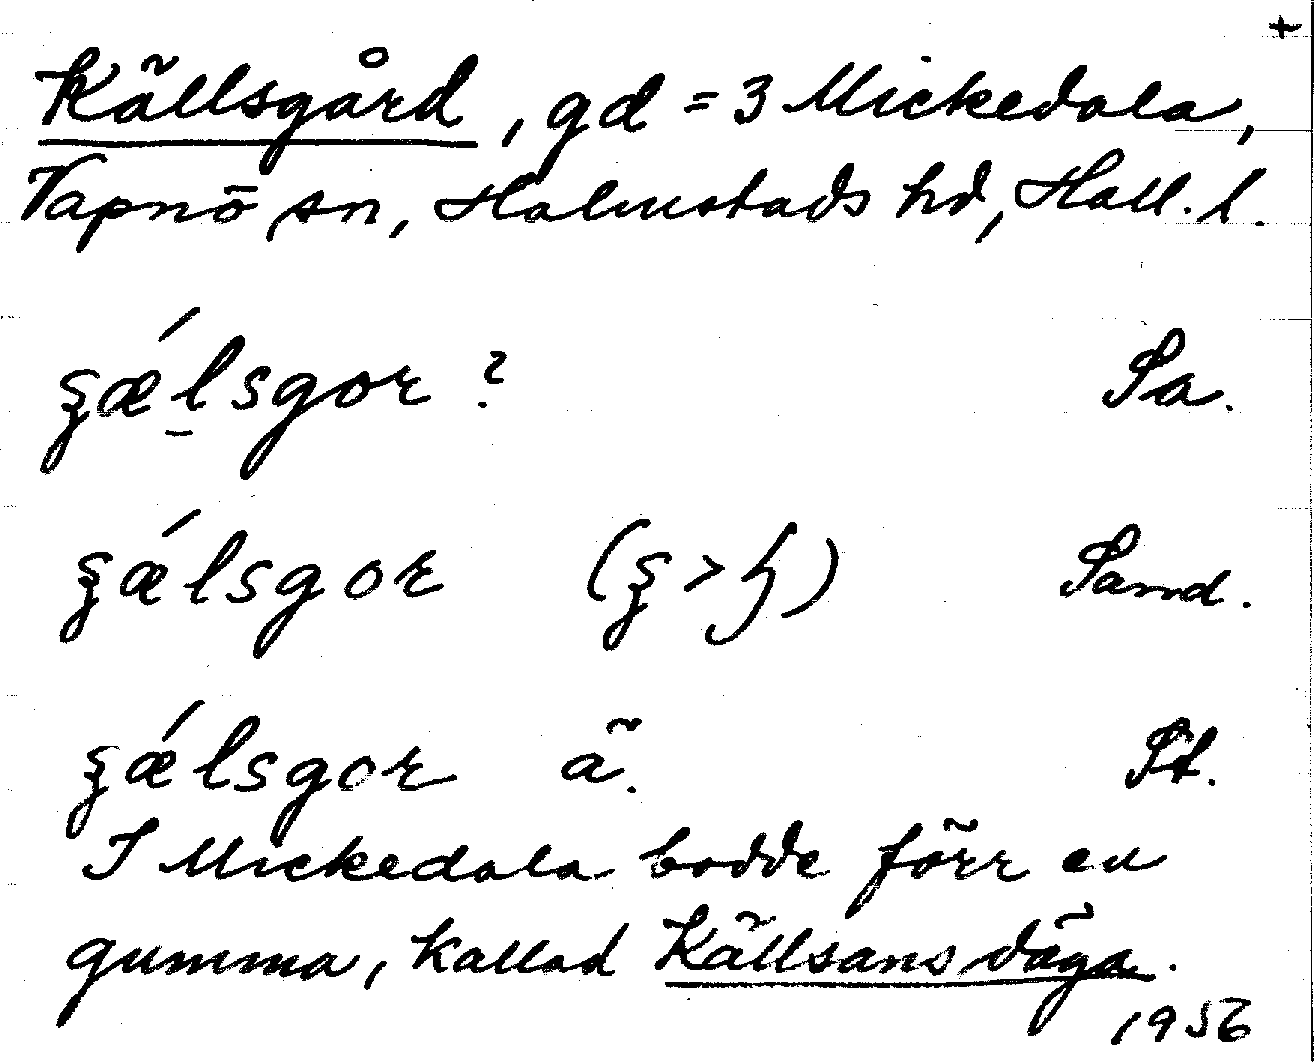 +
Källsgård, gd = 3 Mickedala,
Vapnö sn, Halmstads hd, Hall. l.
ʂǽl̠sgor ? Sa.
ʂǽlsgor (ʂ > ɧ) Sand.
ʂǽlsgor ä. St.
I Mickedala bodde förr en
gumma, kallad Källsans däga.
1956